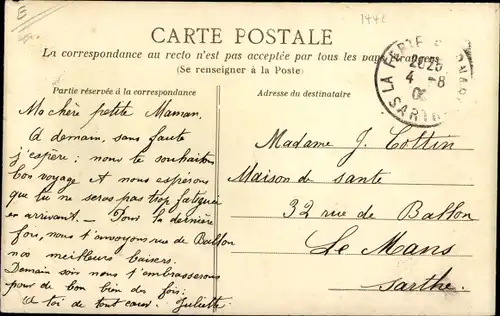 E
1442
CARTE POSTALE
La correspondance au recto n'est pas acceptée par tous les pays étrangers
(Se renseigner à la Poste)
Partie réservée à la correspondance
Adresse du destinataire
LA FERTE
SARTHE
2025
4 - 8
Ma chère petite Maman.
A demain, sans faute
j'espère: nous te souhaitons
bon voyage et nous espérons
que tu ne seras pas trop fatiguée
en arrivant. - Pour la dernière
fois, nous t'envoyons rue de Ballon
nos meilleurs baisers.
Demain soir nous t'embrasserons
pour de bon bien des fois.
A toi de tout cœur. Juliette
Madame J. Cottin
Maison de santé
32 rue de Ballon
Le Mans
Sarthe.